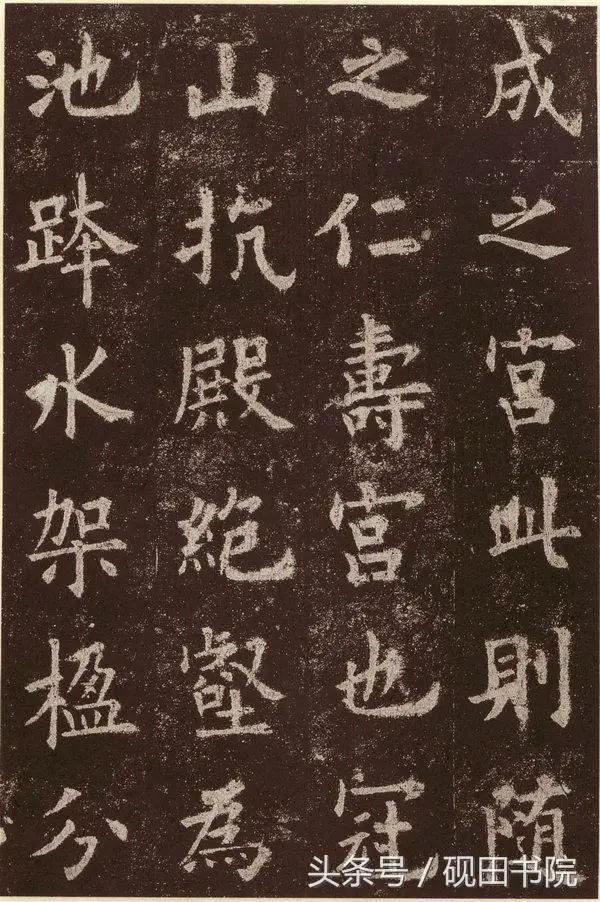 成之宫此則随
之仁壽宫也冠
山抗殿絶壑為
池跨水架楹分
头条号／砚田书院